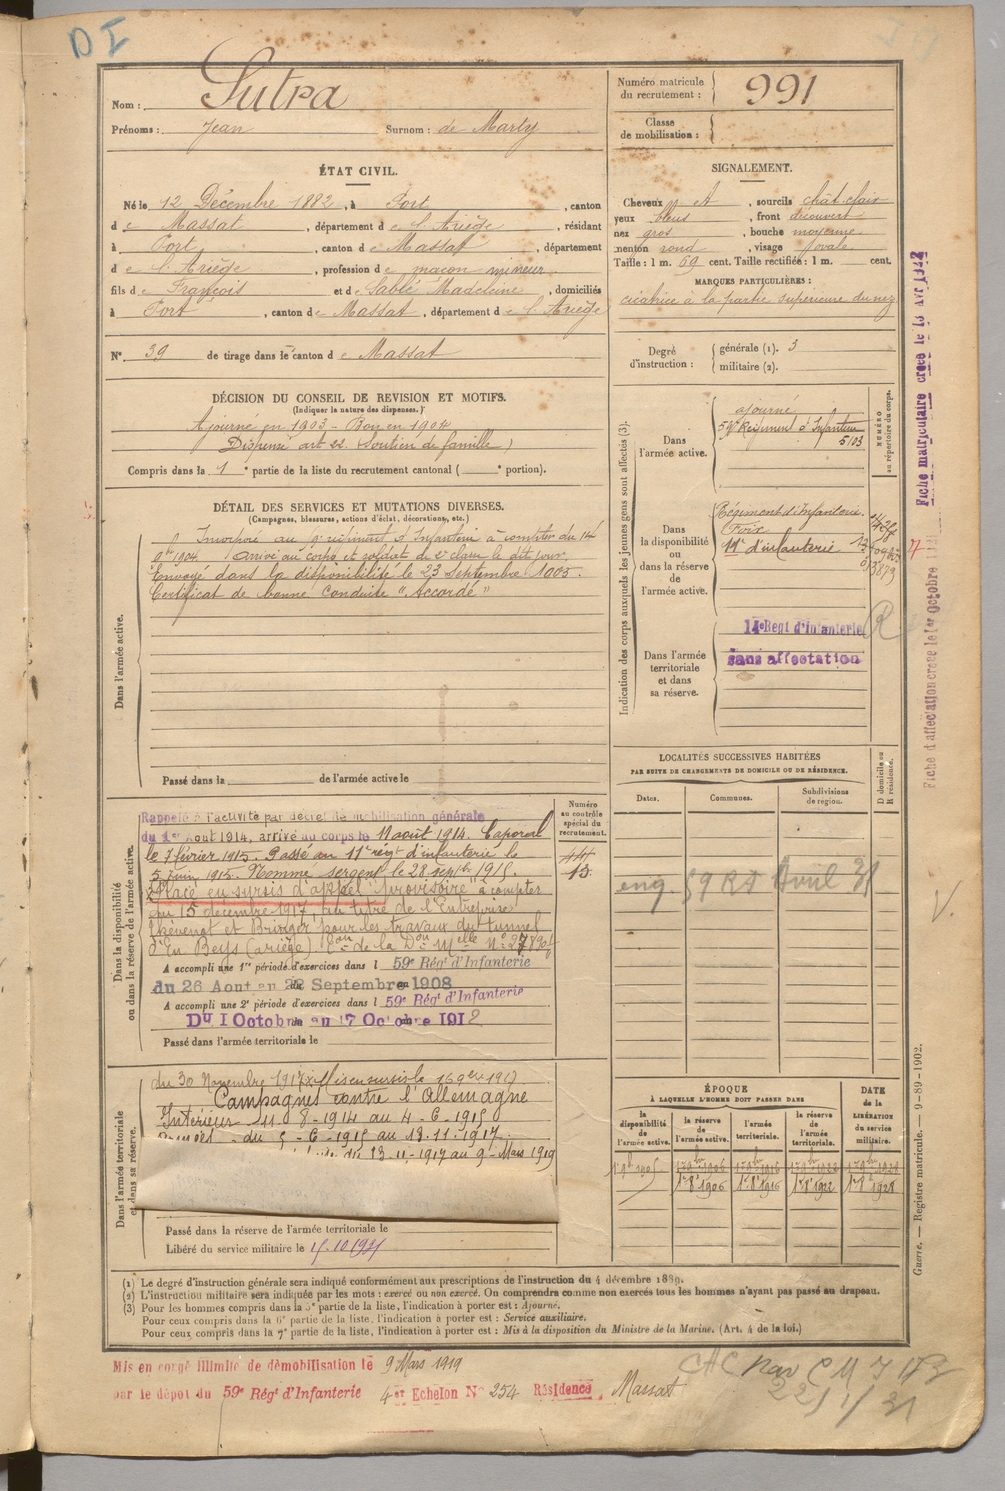 D I
Nom : Sutra
Prénoms : Jean Surnom : de Marty
Numéro matricule du recrutement : 991
Classe de mobilisation :
ÉTAT CIVIL.
Né le 12 Décembre 1882, à Port, canton
de Massat, département de l'Ariège, résidant
à Port, canton de Massat, département
de l'Ariège, profession de maçon mineur
fils de François et de Sablé Madeleine, domiciliés
à Port, canton de Massat, département de l'Ariège
N° 39 de tirage dans le canton de Massat
SIGNALEMENT.
Cheveux et, sourcils chât clair
yeux bleus, front découvert
nez gros, bouche moyenne
menton rond, visage ovale
Taille : 1 m. 69 cent. Taille rectifiée : 1 m. cent.
MARQUES PARTICULIÈRES :
cicatrice à la partie supérieure du nez
Degré d'instruction : générale (1). 3
militaire (2).
DÉCISION DU CONSEIL DE REVISION ET MOTIFS.
(Indiquer la nature des dispenses.)
Ajourné en 1903 - Bon en 1904
Dispensé art 22. Soutien de famille)
Compris dans la 1e partie de la liste du recrutement cantonal ( e portion).
DÉTAIL DES SERVICES ET MUTATIONS DIVERSES.
(Campagnes, blessures, actions d'éclat, décorations, etc.)
Dans l'armée active.
Incorporé au régiment d'Infanterie à compter du 14
9bre 1904. Arrivé au corps et soldat de 2e classe le dit jour.
Envoyé dans la disponibilité le 23 Septembre 1905.
Certificat de bonne Conduite "Accordé"
Passé dans la de l'armée active le
Indication des corps auxquels les jeunes gens sont affectés (3).
NUMÉRO au répertoire du corps.
Dans l'armée active.
ajourné
59e Régiment d'Infanterie
5103
Dans la disponibilité ou dans la réserve de l'armée active.
Régiment d'Infanterie
Foix
11e d'infanterie
Dans l'armée territoriale et dans sa réserve.
14e Régt d'Infanterie
sans affectation
R
Fiche matriculaire créée le 15 AVR 1922
Fiche d'affectation créée le 1er octobre
LOCALITÉS SUCCESSIVES HABITÉES
PAR SUITE DE CHANGEMENTS DE DOMICILE OU DE RÉSIDENCE.
Dates. Communes. Subdivisions de région. D domicile ou R résidence.
59 RI Avril 31
V.
Dans la disponibilité ou dans la réserve de l'armée active.
Numéro au contrôle spécial du recrutement.
Rappelé à l'activité par décret de mobilisation générale
du 1er Août 1914, arrivé au corps le 11 août 1914. Caporal
le 7 février 1915. Passé au 11e régt d'infanterie le
5 juin 1915. Nommé sergent le 28 septbre 1915.
Placé en sursis d'appel "provisoire" à compter
du 15 décembre 1917, au titre de l'Entreprise
Thévenot et Bringer pour les travaux du tunnel
d'En Beys (ariège)
A accompli une 1re période d'exercices dans l 59e Rég d'Infanterie
du 26 Aout au 22 Septembre 1908
A accompli une 2e période d'exercices dans l 59e Rég d'Infanterie
Du 1 Octobre au 17 Octobre 1912
Passé dans l'armée territoriale le
Dans l'armée territoriale et dans sa réserve.
du 30 Novembre 1917. Mis en sursis le 16 9bre 1917
Campagnes contre l'Allemagne
Intérieur 11-8-1914 au 4-6-1915
Armées - du 5-6-1915 au 13-11-1917.
du 13-11-1917 au 9-Mars 1919
Passé dans la réserve de l'armée territoriale le
Libéré du service militaire le 15.10.1931
ÉPOQUE
À LAQUELLE L'HOMME DOIT PASSER DANS
la disponibilité de l'armée active. la réserve de l'armée active. l'armée territoriale. la réserve de l'armée territoriale.
DATE de la LIBÉRATION du service militaire.
1er 9bre 1905 1er 9bre 1906 1er 9bre 1916 1er 9bre 1922 1er 9bre 1928
1er 8bre 1906 1er 8bre 1916 1er 8bre 1922 1er 8bre 1928
Guerre. — Registre matricule. — 9-89-1902.
(1) Le degré d'instruction générale sera indiqué conformément aux prescriptions de l'instruction du 4 décembre 1889.
(2) L'instruction militaire sera indiquée par les mots : exercé ou non exercé. On comprendra comme non exercés tous les hommes n'ayant pas passé au drapeau.
(3) Pour les hommes compris dans la 5e partie de la liste, l'indication à porter est : Ajourné.
Pour ceux compris dans la 6e partie de la liste, l'indication à porter est : Service auxiliaire.
Pour ceux compris dans la 7e partie de la liste, l'indication à porter est : Mis à la disposition du Ministre de la Marine. (Art. 4 de la loi.)
Mis en congé illimité de démobilisation le 9 Mars 1919
par le dépôt du 59e Rég d'Infanterie 4e Echelon N° 254 Résidence Massat